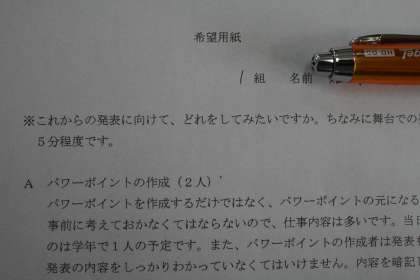 希望用紙
1 組 名前
※これからの発表に向けて、どれをしてみたいですか。ちなみに舞台での
5分程度です。
A パワーポイントの作成(2人)
パワーポイントを作成するだけではなく、パワーポイントの元になる
事前に考えておかなくてはならないので、仕事内容は多いです。当
のは学年で1人の予定です。また、パワーポイントの作成者は発表
発表の内容をしっかりわかっていなくてはいけません。内容を暗記